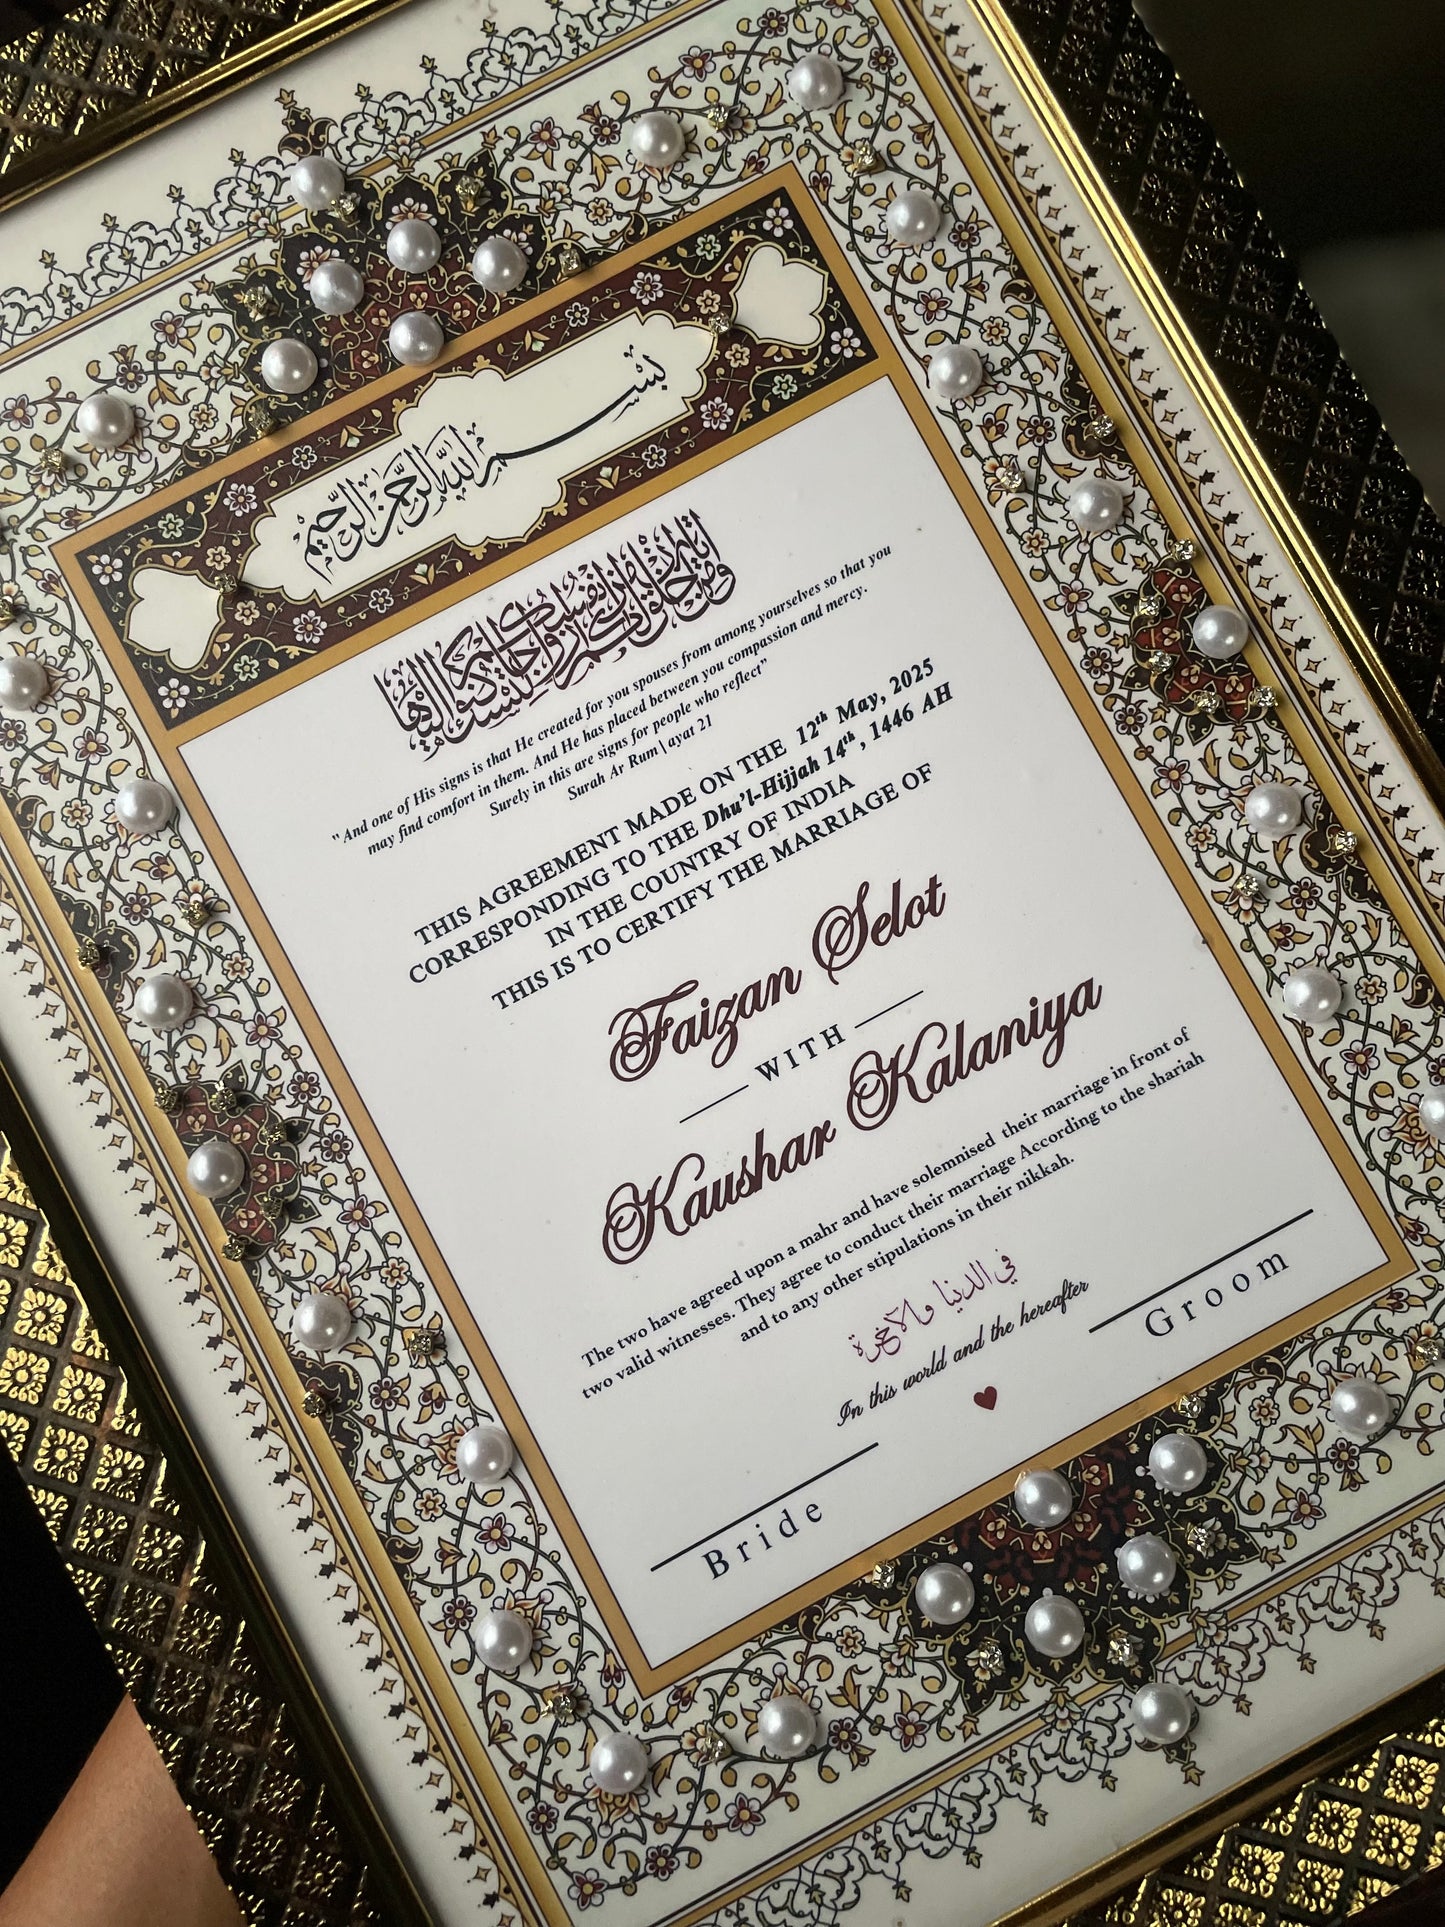 بسم الله الرحمن الرحيم
ومن آياته أن خلق لكم من أنفسكم أزواجا لتسكنوا إليها
"And one of His signs is that He created for you spouses from among yourselves so that you
may find comfort in them. And He has placed between you compassion and mercy.
Surely in this are signs for people who reflect"
Surah Ar Rum\ayat 21
THIS AGREEMENT MADE ON THE 12th May, 2025
CORRESPONDING TO THE Dhu'l-Hijjah 14th, 1446 AH
IN THE COUNTRY OF INDIA
THIS IS TO CERTIFY THE MARRIAGE OF
Faizan Selot
WITH
Kaushar Kalaniya
The two have agreed upon a mahr and have solemnised their marriage in front of
two valid witnesses. They agree to conduct their marriage According to the shariah
and to any other stipulations in their nikkah.
في الدنيا والآخرة
In this world and the hereafter
Bride
Groom